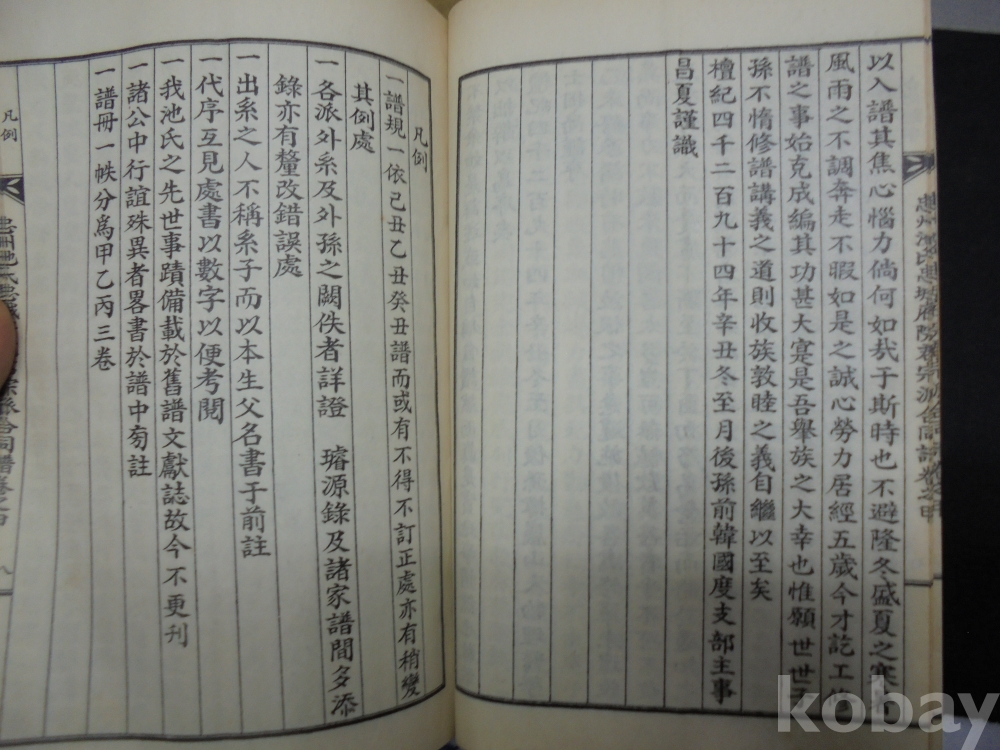 以入譜其焦心惱力倘何如㦲于斯時也不避隆冬盛夏之寒
風雨之不調奔走不暇如是之誠心勞力居經五歲今才訖工
譜之事始克成編其功甚大寔是吾舉族之大幸也惟願世世子
孫不惰修譜講義之道則收族敦睦之義自繼以至矣
檀紀四千二百九十四年辛丑冬至月後孫前韓國度支部主事
昌夏謹識
凡例
一譜規一依己丑乙丑癸丑譜而或有不得不訂正處亦有稍變
其例處
一各派外系及外孫之闕佚者詳證 璿源錄及諸家譜間多添
錄亦有釐改錯誤處
一出系之人不稱系子而以本生父名書于前註
一代序互見處書以數字以便考閱
一我池氏之先世事蹟備載於舊譜文獻誌故今不更刊
一諸公中行誼殊異者畧書於譜中旁註
一譜冊一帙分爲甲乙丙三卷
凡例
八
kobay